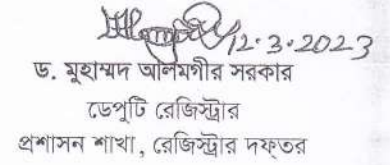 12.3.2023
ড. মুহাম্মদ আলমগীর সরকার
ডেপুটি রেজিস্ট্রার
প্রশাসন শাখা, রেজিস্ট্রার দফ্তর